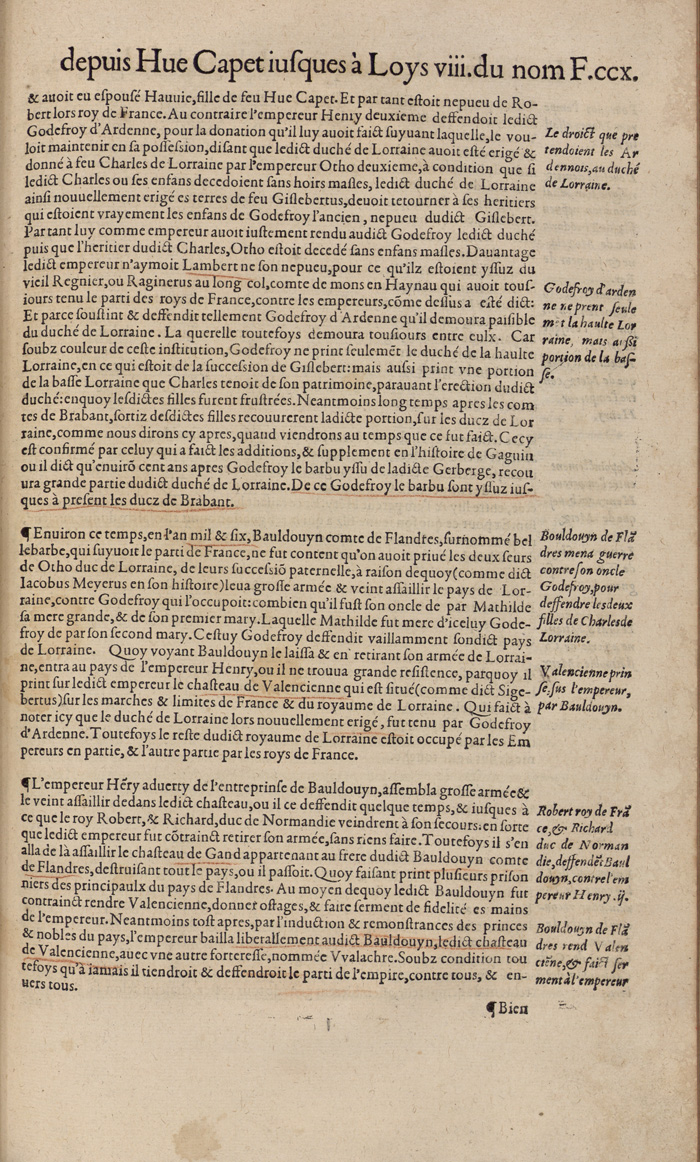 depuis Hue Capet iuſques à Loys viii.du nom F.ccx.
& auoit eu eſpouſé Hauuie,fille de feu Hue Capet.Et par tant eſtoit nepueu de Ro-
bert lors roy de France.Au contraire l'empereur Henry deuxieme deffendoit ledict
Godefroy d'Ardenne, pour la donation qu'il luy auoit faict ſuyuant laquelle,le vou-
loit maintenir en ſa poſſeſſion,diſant que ledict duché de Lorraine auoit eſté erigé &
donné à feu Charles de Lorraine par l'empereur Otho deuxieme,à condition que ſi
ledict Charles ou ſes enfans decedoient ſans hoirs maſles, ledict duché de Lorraine
ainſi nouuellement erigé es terres de feu Giſlebertus,deuoit tetourner à ſes heritiers
qui eſtoient vrayement les enfans de Godefroy l'ancien, nepueu dudict Giſlebert.
Par tant luy comme empereur auoit iuſtement rendu audict Godefroy ledict duché
puis que l'heritier dudict Charles,Otho eſtoit decedé ſans enfans maſles.Dauantage
ledict empereur n'aymoit Lambert ne ſon nepueu,pour ce qu'ilz eſtoient yſſuz du
vieil Regnier,ou Raginerus au long col,comte de mons en Haynau qui auoit touſ-
iours tenu le parti des roys de France,contre les empereurs,cõme deſſus a eſté dict:
Et parce ſouſtint & deffendit tellement Godefroy d'Ardenne qu'il demoura paiſible
du duché de Lorraine. La querelle toutefoys demoura touſiours entre eulx. Car
ſoubz couleur de ceſte inſtitution,Godefroy ne print ſeulemẽt le duché de la haulte
Lorraine,en ce qui eſtoit de la ſucceſſion de Giſlebert:mais auſſi print vne portion
de la baſſe Lorraine que Charles tenoit de ſon patrimoine,parauant l'erection dudict
duché:enquoy leſdictes filles furent fruſtrées.Neantmoins long temps apres les com
tes de Brabant,ſortiz deſdictes filles recouurerent ladicte portion,ſur les ducz de Lor
raine,comme nous dirons cy apres,quand viendrons au temps que ce fut faict.Cecy
eſt confirmé par celuy qui a faict les additions,& ſupplement en l'hiſtoire de Gaguin
ou il dict qu'enuirõ cent ans apres Godefroy le barbu yſſu de ladicte Gerberge,recou
ura grande partie dudict duché de Lorraine.De ce Godefroy le barbu ſont yſſuz iuſ-
ques à preſent les ducz de Brabant.
Le droict que pre
tendoient les Ar
dennois,au duché
de Lorraine.
Godefroy d'arden
ne ne prent ſeule
mẽt la haulte Lor
raine, mais auſsi
portion de la baſ-
ſe.
¶Enuiron ce temps,en l'an mil & ſix,Bauldouyn comte de Flandres,ſurnommé bel
lebarbe,qui ſuyuoit le parti de France,ne fut content qu'on auoit priué les deux ſeurs
de Otho duc de Lorraine, de leurs ſucceſſiõ paternelle,à raiſon dequoy(comme dict
Iacobus Meyerus en ſon hiſtoire)leua groſſe armée & veint aſſaillir le pays de Lor-
raine,contre Godefroy qui l'occupoit:combien qu'il fuſt ſon oncle de par Mathilde
ſa mere grande,& de ſon premier mary.Laquelle Mathilde fut mere d'iceluy Gode-
froy de par ſon ſecond mary.Ceſtuy Godefroy deffendit vaillamment ſondict pays
de Lorraine. Quoy voyant Bauldouyn le laiſſa & en retirant ſon armée de Lorrai-
ne,entra au pays de l'empereur Henry,ou il ne trouua grande reſiſtence, parquoy il
print ſur ledict empereur le chaſteau de Valencienne qui eſt ſitué(comme dict Sige-
bertus)ſur les marches & limites de France & du royaume de Lorraine. Qui faict à
noter icy que le duché de Lorraine lors nouuellement erigé, fut tenu par Godefroy
d'Ardenne.Toutefoys le reſte dudict royaume de Lorraine eſtoit occupé par les Em
pereurs en partie,& l'autre partie par les roys de France.
Bouldouyn de Flã
dres mena guerre
contre ſon oncle
Godefroy,pour
deffendre les deux
filles de Charles de
Lorraine.
Valencienne prin
ſe,ſus l'empereur,
par Bauldouyn.
¶L'empereur Hẽry aduerty de l'entreprinſe de Bauldouyn,aſſembla groſſe armée &
le veint aſſaillir dedans ledict chaſteau,ou il ce deffendit quelque temps,& iuſques à
ce que le roy Robert,& Richard,duc de Normandie veindrent à ſon ſecours:en ſorte
que ledict empereur fut cõtrainct retirer ſon armée,ſans riens faire.Toutefoys il s'en
alla de là aſſaillir le chaſteau de Gand appartenant au frere dudict Bauldouyn comte
de Flandres,deſtruiſant tout le pays,ou il paſſoit.Quoy faiſant print pluſieurs priſon
niers des principaulx du pays de Flandres. Au moyen dequoy ledict Bauldouyn fut
contrainct rendre Valencienne,donner oſtages,& faire ſerment de fidelité es mains
de l'empereur.Neantmoins toſt apres,par l'induction & remonſtrances des princes
& nobles du pays,l'empereur bailla liberallement audict Bauldouyn,ledict chaſteau
de Valencienne,auec vne autre fortereſſe,nommée Vvalachre.Soubz condition tou
tefoys qu'à iamais il tiendroit & deffendroit le parti de l'empire,contre tous, & en-
uers tous.
Robert roy de Frã
ce,& Richard
duc de Norman
die,deffendẽt Baul
douyn,contre l'em
pereur Henry .ij.
Bouldouyn de Flã
dres rend Valen
ciẽne,& faict ſer
ment à l'empereur
¶Bien